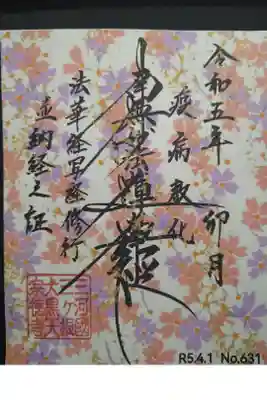 令和五年 卯月
疫病教化
南無妙法蓮華経
法華経写経修行
並納経之証
三河國
三ヶ根
大黒天
R5.4.1 No.631